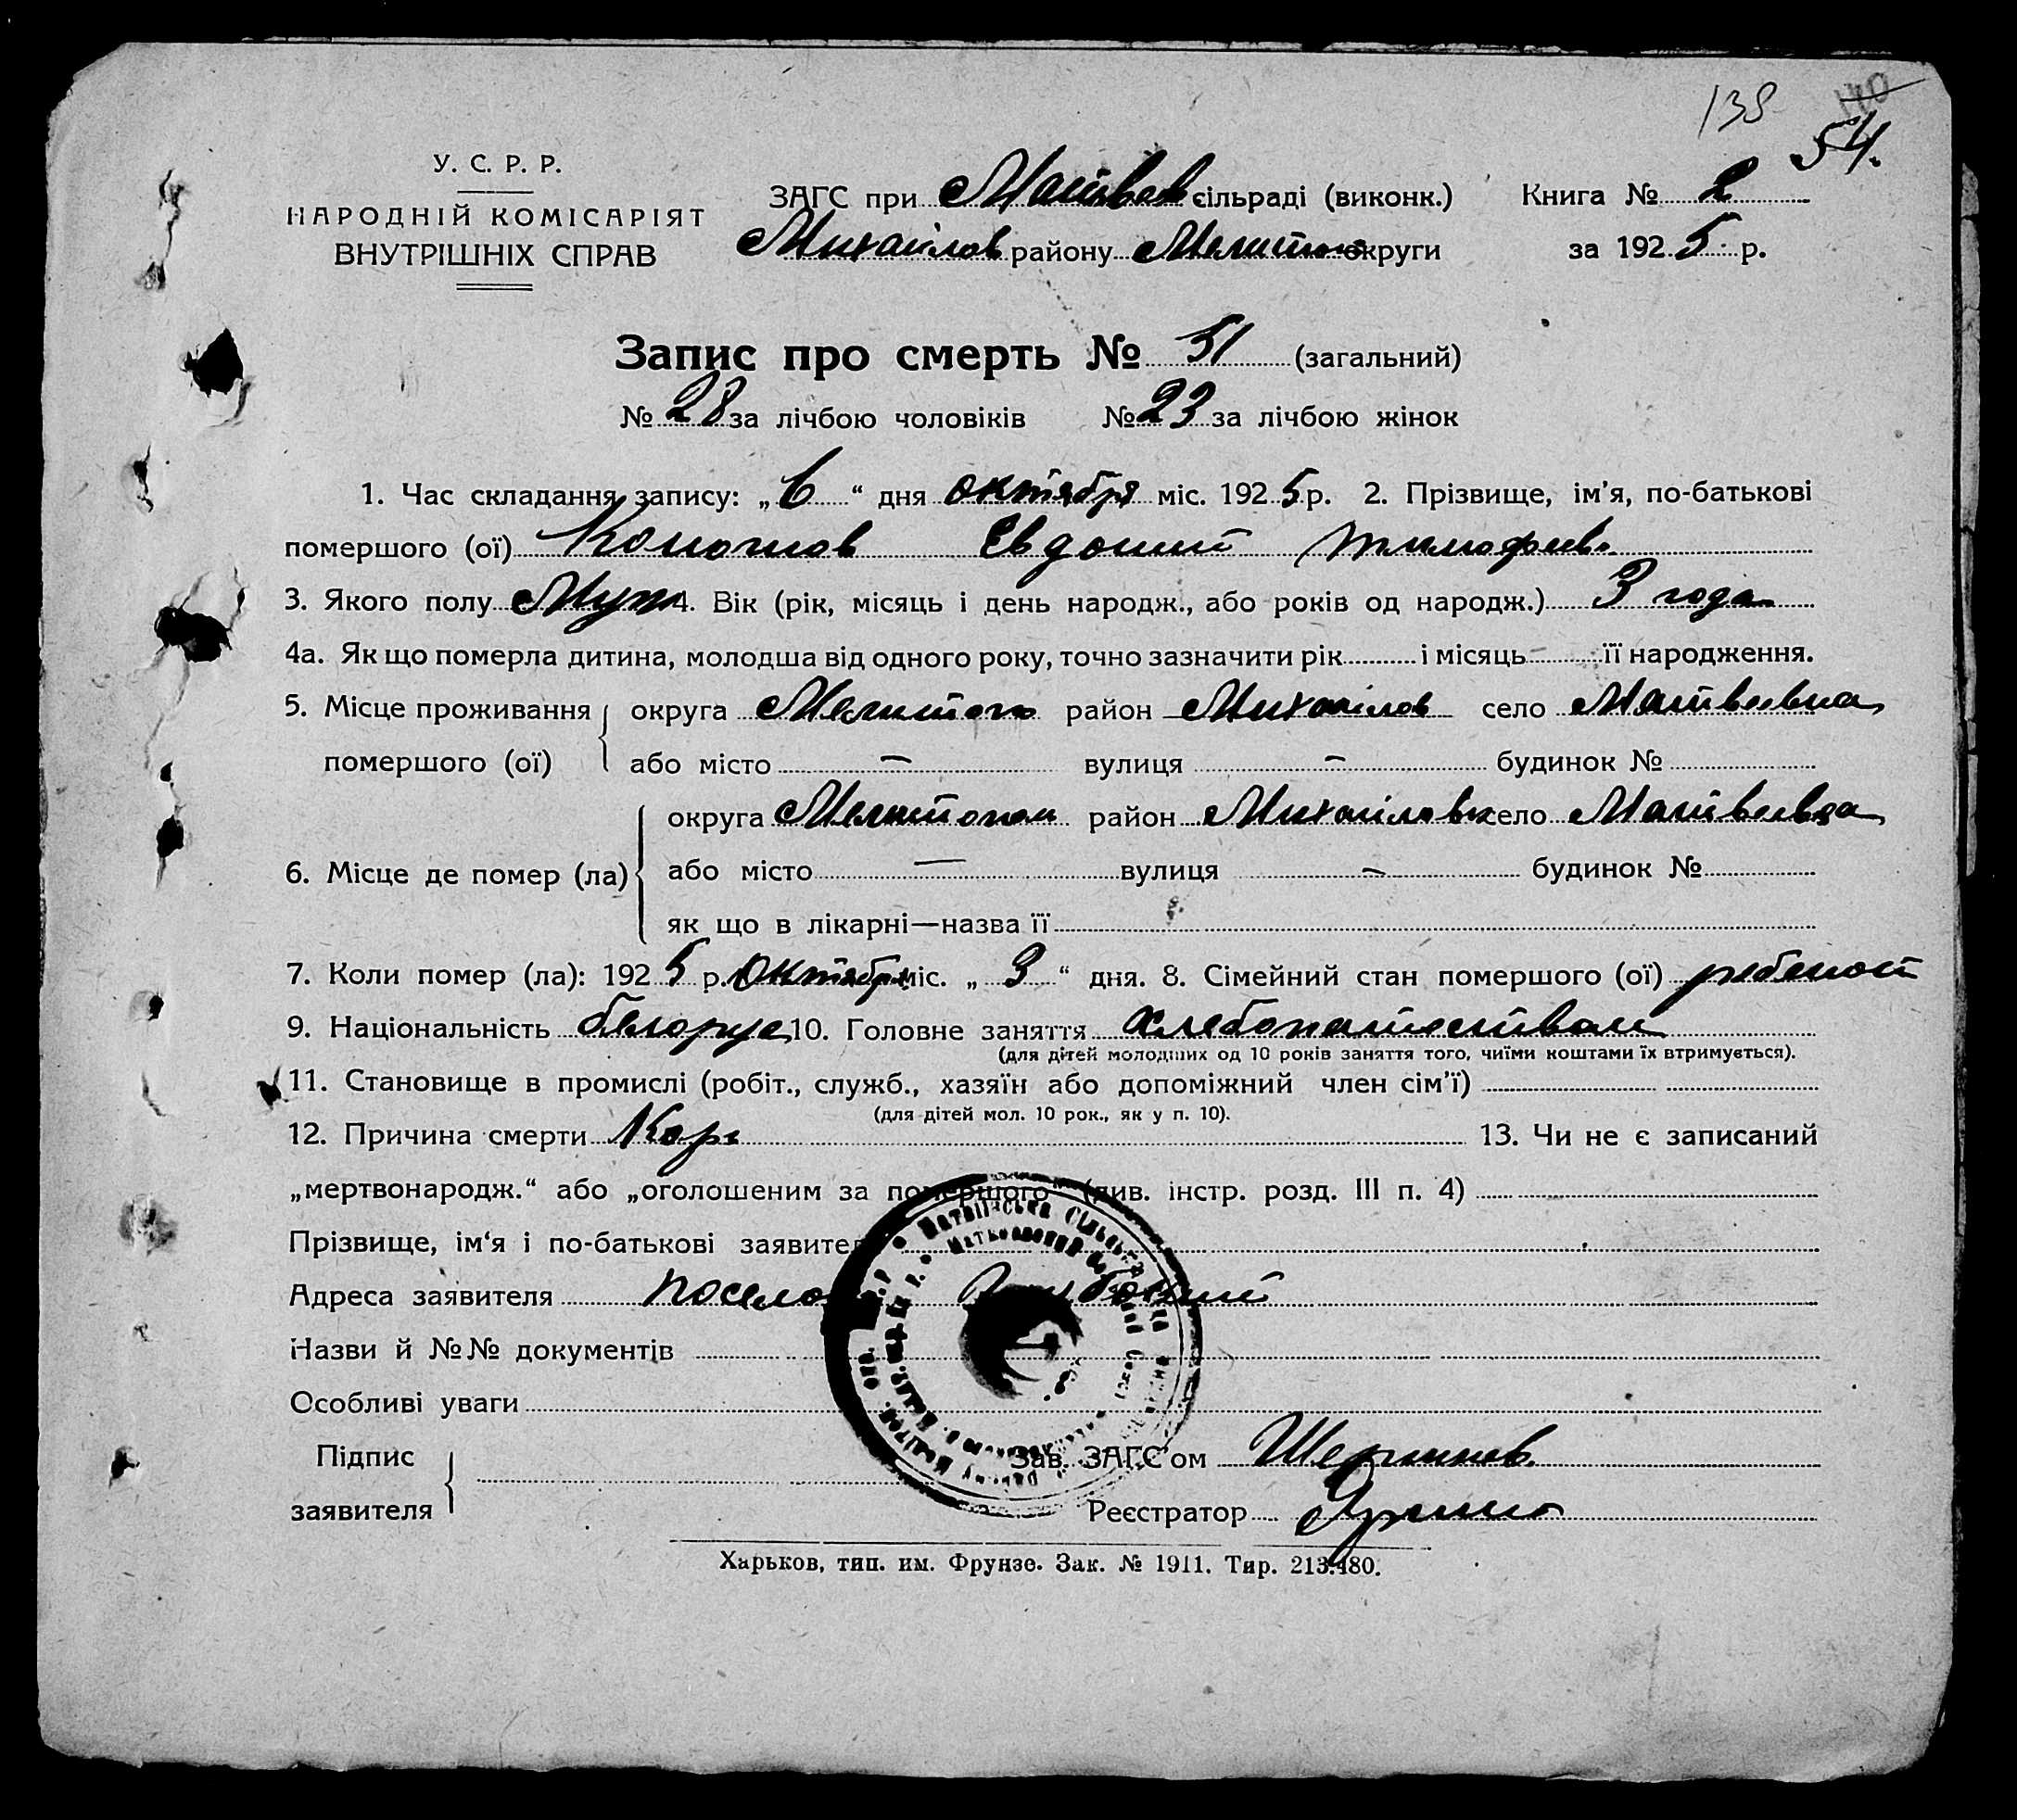 138
54.
У. С. Р. Р.
НАРОДНІЙ КОМІСАРІЯТ
ВНУТРІШНІХ СПРАВ
ЗАГС при Матвеев сільраді (виконк.) Книга № 2
Михайлов району Мелитоп округи за 1925 р.
Запис про смерть № 51 (загальний)
№ 28 за лічбою чоловіків № 23 за лічбою жінок
1. Час складання запису: „6“ дня октября міс. 1925 р. 2. Прізвище, ім’я, по-батькові
помершого (ої) Евдоким Тимофеев.
3. Якого полу Муж 4. Вік (рік, місяць і день народж., або років од народж.) 3 года
4а. Як що померла дитина, молодша від одного року, точно зазначити рік і місяць її народження.
5. Місце проживання помершого (ої) округа Мелитоп район Михайлов село Матвеевка
або місто — вулиця — будинок №
6. Місце де помер (ла) округа Мелитопол район Михайловк село Матвеевка
або місто — вулиця — будинок №
як що в лікарні—назва її
7. Коли помер (ла): 1925 р. Октября міс. „3“ дня. 8. Сімейний стан помершого (ої) ребенок
9. Національність белорус 10. Головне заняття хлебопашеством
(для дітей молодших од 10 років заняття того, чиїми коштами їх втримується).
11. Становище в промислі (робіт., служб., хазяїн або допоміжний член сім’ї)
(для дітей мол. 10 рок., як у п. 10).
12. Причина смерти Корь 13. Чи не є записаний
„мертвонародж.“ або „оголошеним за помершого“ (див. інстр. розд. III п. 4)
Прізвище, ім‘я і по-батькові заявителя
Адреса заявителя
Назви й №№ документів
Особливі уваги
Підпис заявителя
Зав. ЗАГС'ом
Реєстратор
Харьков, тип. им. Фрунзе. Зак. № 1911. Тир. 213.480.